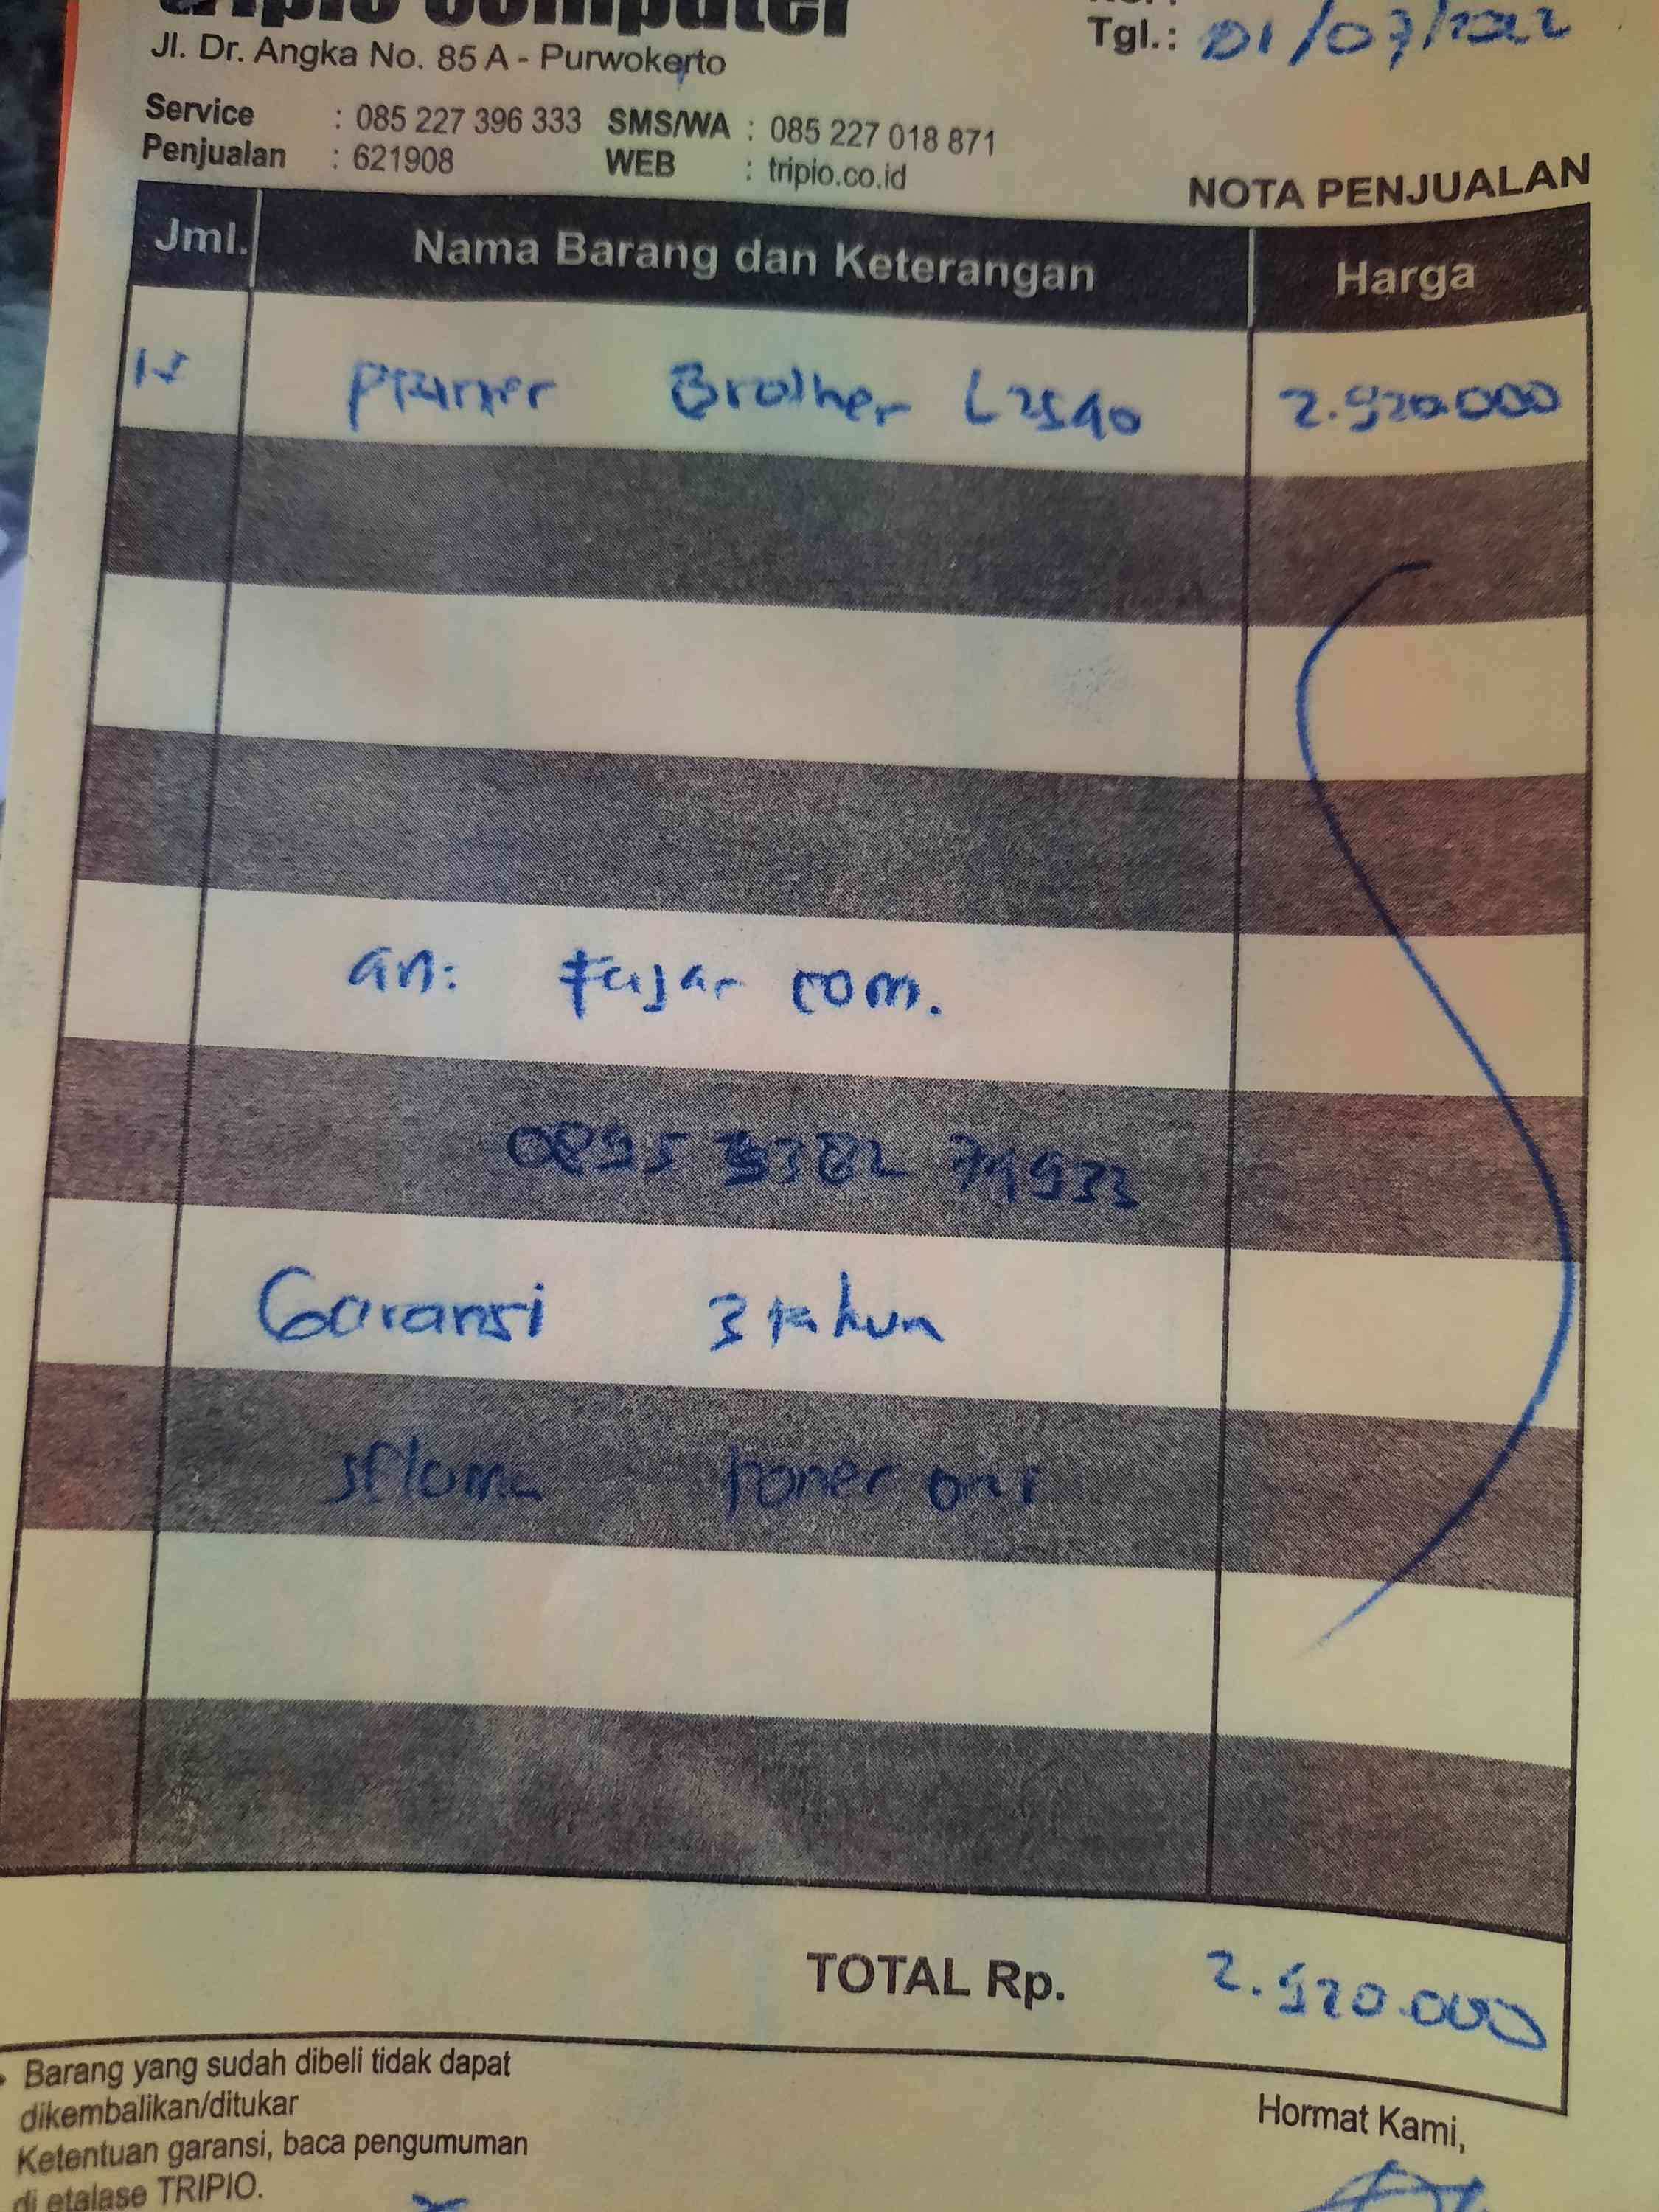 tripio computer
Jl. Dr. Angka No. 85 A - Purwokerto
Tgl.: 01/07/2022
Service : 085 227 396 333 SMS/WA : 085 227 018 871
Penjualan : 621908 WEB : tripio.co.id
NOTA PENJUALAN
Jml. Nama Barang dan Keterangan Harga
Printer Brother L2540 2.920.000
an: Fajar com.
Garansi 3 tahun
selama toner ori
TOTAL Rp. 2.920.000
Barang yang sudah dibeli tidak dapat
dikembalikan/ditukar
Hormat Kami,
Ketentuan garansi, baca pengumuman
di etalase TRIPIO.